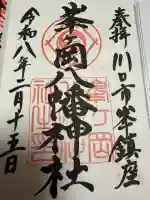 奉拝 川口市峯鎮座
峯ヶ岡八幡神社
令和八年二月十五日